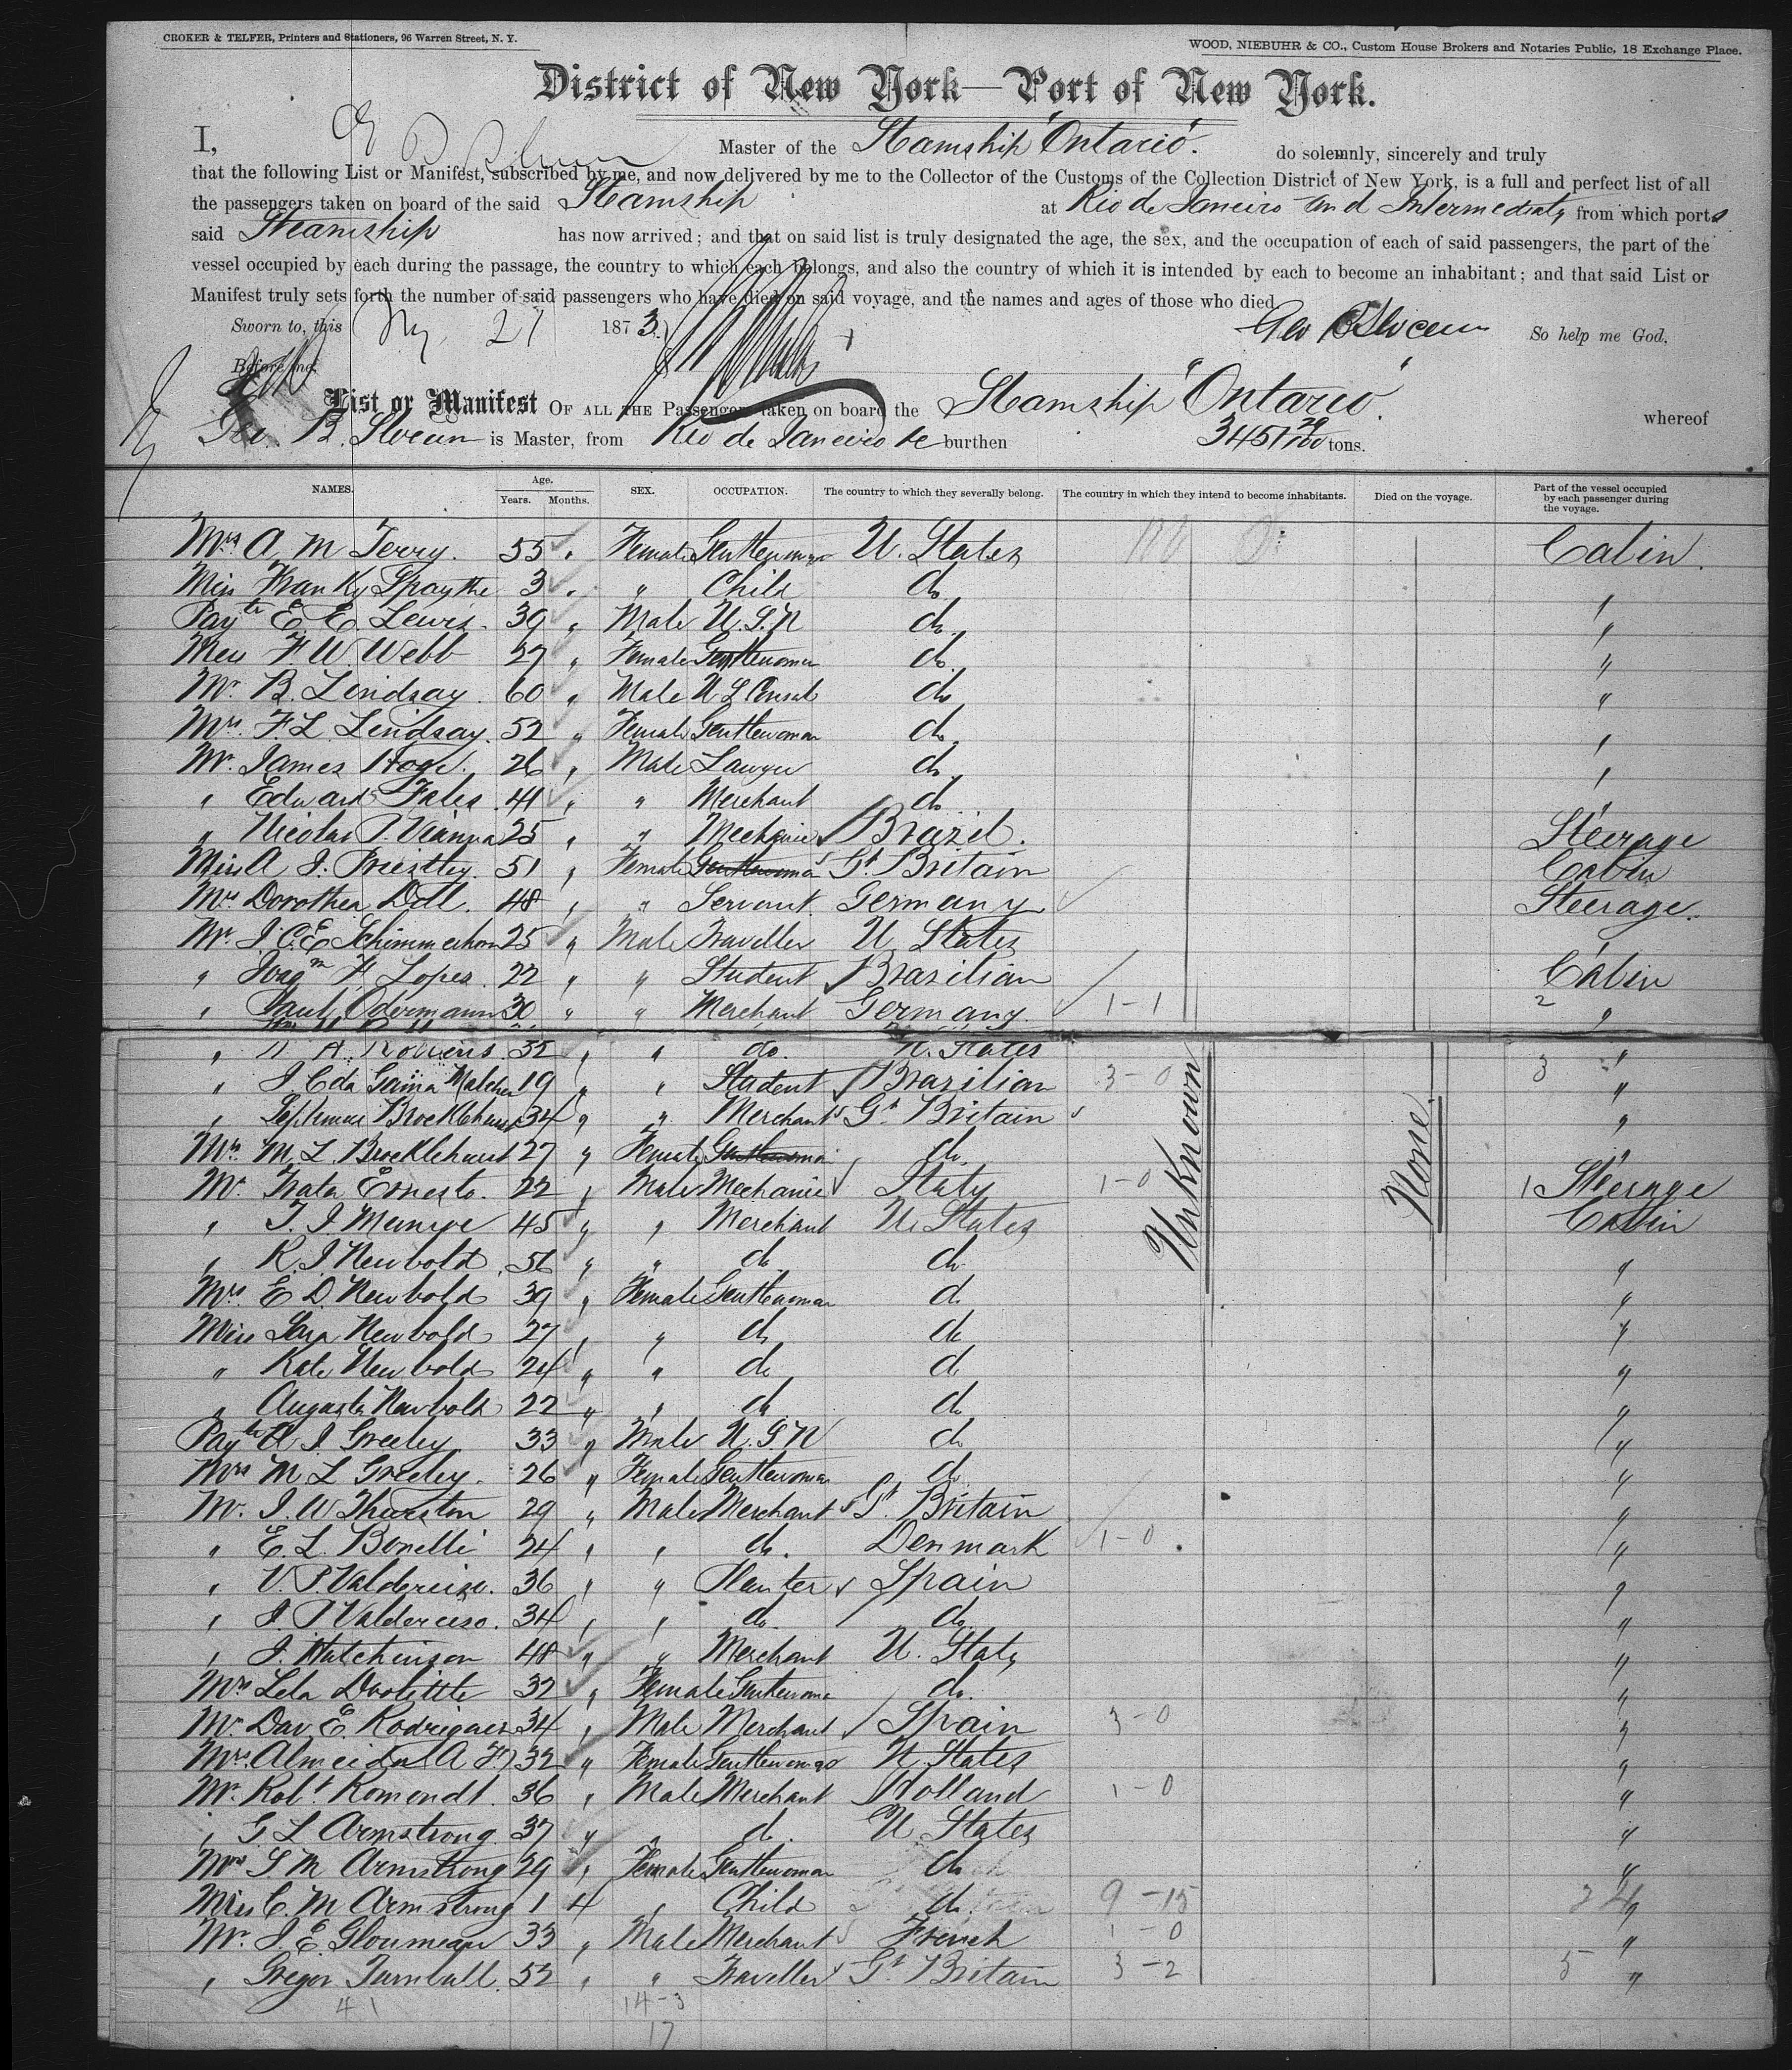 CROKER & TELFER, Printers and Stationers, 96 Warren Street, N. Y.
WOOD, NIEBUHR & CO., Custom House Brokers and Notaries Public, 18 Exchange Place.
District of New York—Port of New York.
I, Master of the Steamship "Ontario". do solemnly, sincerely and truly
that the following List or Manifest, subscribed by me, and now delivered by me to the Collector of the Customs of the Collection District of New York, is a full and perfect list of all
the passengers taken on board of the said Steamship at Rio de Janeiro and Intermediate from which ports
said Steamship has now arrived; and that on said list is truly designated the age, the sex, and the occupation of each of said passengers, the part of the
vessel occupied by each during the passage, the country to which each belongs, and also the country of which it is intended by each to become an inhabitant; and that said List or
Manifest truly sets forth the number of said passengers who have died on said voyage, and the names and ages of those who died.
Sworn to, this 21 1873 Geo B Slocum So help me God,
Before me,
List or Manifest OF ALL THE Passengers taken on board the Steamship "Ontario". whereof
Geo. B. Slocum is Master, from Rio de Janeiro &c burthen 3451 29/100 tons.
NAMES. Age. Years. Months. SEX. OCCUPATION. The country to which they severally belong. The country in which they intend to become inhabitants. Died on the voyage. Part of the vessel occupied by each passenger during the voyage.
Mrs A. M Terry. 55 " Female Gentlewoman U. States Cabin.
Miss Franky Spaythe 3 " " Child do "
Paytr E. E. Lewis. 39 " Male U.S.N do "
Mrs F. W. Webb 27 " Female Gentlewoman do "
Mr. B. Lindsay. 60 " Male U S Consul do "
Mrs. F L Lindsay. 52 " Female Gentlewoman do "
Mr. James Hoge. 26 " Male Lawyer do "
" Edward Fales 41 " " Merchant do "
" Nicolas P. Vianna 25 " " Mechanic Brazil. Steerage
Miss A J. Priestley. 51 " Female Gentlewoman Gt. Britain Cabin
Mrs Dorothea Doll. 48 " " Servant Germany Steerage.
Mr. J. C. E Schimmerhorn 25 " Male Traveller U. States "
" Joaqm F. Lopes. 22 " " Student Brazilian Cabin
" Paul Odermann 30 " " Merchant Germany. 1-1 2 "
" Robbins. 32 " " do. U. States 3 "
" J. C da Gama Malcher 19 " " Student Brazilian 3-0 "
" Septimus Brocklehurst 34 " " Merchant Gt. Britain "
Mrs. M. L. Brocklehurst 27 " Female Gentlewoman do "
Mr. Frata Ernesto. 22 " Male Mechanic Italy 1-0 1 Steerage
" T. J. Munroe 45 " " Merchant U. States Cabin
" R. J Newbold 56 " " do do "
Mrs E D. Newbold 39 " Female Gentlewoman do "
Miss Newbold 27 " " do do "
" Kate Newbold 24 " " do do "
" Augusta Newbold 22 " " do do "
Paytr A J. Greeley. 33 " Male U.S.N do "
Mrs M L Greeley. 26 " Female Gentlewoman do "
Mr. J. W Thurston 29 " Male Merchant Gt. Britain "
" E. L. Bonelli 24 " " do. Denmark 1-0 "
" V. P. 36 " " Planter Spain "
" J. P. 34 " " do. do. "
" J. Hutchinson 48 " " Merchant U. States "
Mrs Lela Doolittle 32 " Female Gentlewoman do. "
Mr. Dav. E. Rodriguez 34 " Male Merchant Spain 3-0 "
Mrs. Almeida (A F) 32 " Female Gentlewoman U. States "
Mr. Robt. Romondt. 36 " Male Merchant Holland 1-0 "
" G L Armstrong. 37 " " do. U. States "
Mrs S. M Armstrong 29 " Female Gentlewoman do "
Miss C. M Armstrong 1 4 " Child do. 9-15 "
Mr. J. E. Gloumeau 33 " Male Merchant French 1-0 "
" Gregor Turnbull. 52 " " Traveller Gt. Britain 3-2 5 "
Unknown
None
41 14-3
17